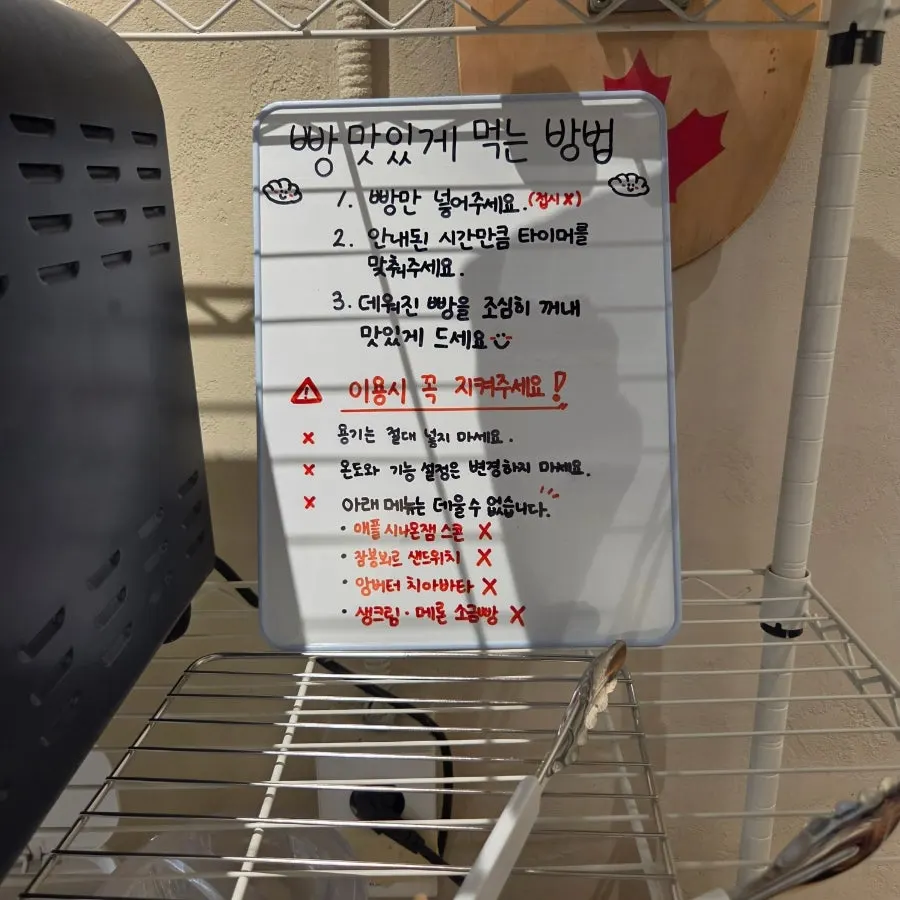 빵 맛있게 먹는 방법
1. 빵만 넣어주세요. (접시 X)
2. 안내된 시간만큼 타이머를
맞춰주세요.
3. 데워진 빵을 조심히 꺼내
맛있게 드세요
이용시 꼭 지켜주세요!
X 용기는 절대 넣지 마세요.
X 온도와 기능 설정은 변경하지 마세요.
X 아래 메뉴는 데울 수 없습니다.
• 애플 시나몬잼 스콘 X
• 잠봉뵈르 샌드위치 X
• 앙버터 치아바타 X
• 생크림 · 메론 소금빵 X